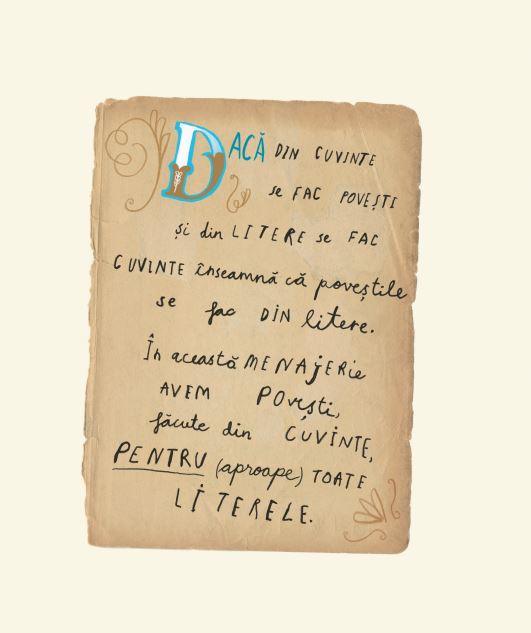 DACĂ DIN CUVINTE
se FAC POVEȘTI
și din LITERE se FAC
CUVINTE înseamnă că poveștile
se fac DIN litere.
În această MENAJERIE
AVEM POVEști,
făcute din CUVINTE,
PENTRU (aproape) TOATE
LITERELE.